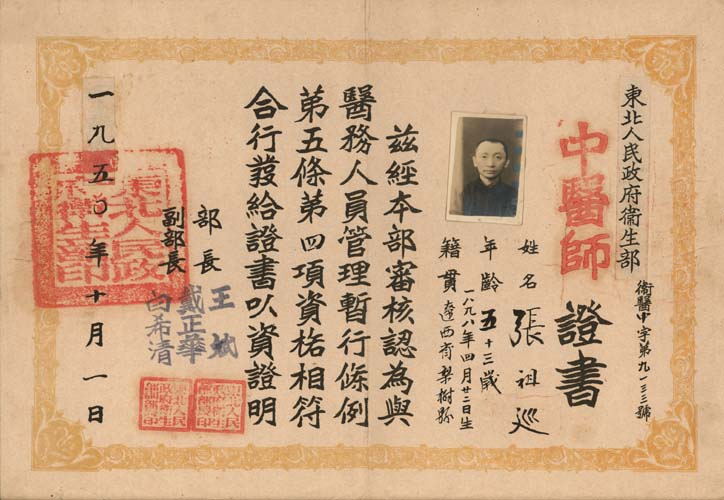 東北人民政府衞生部
中醫師
證書
衞醫中字第九一三三號
姓名 張祖巡
年齡 五十三歲
一八九八年四月廿二日生
籍貫 遼西省梨樹縣
茲經本部審核認為與
醫務人員管理暫行條例
第五條第四項資格相符
合行發給證書以資證明
部長 王斌
副部長 戴正華
白希清
一九五〇年十月一日
東北人民政
府衞生部印